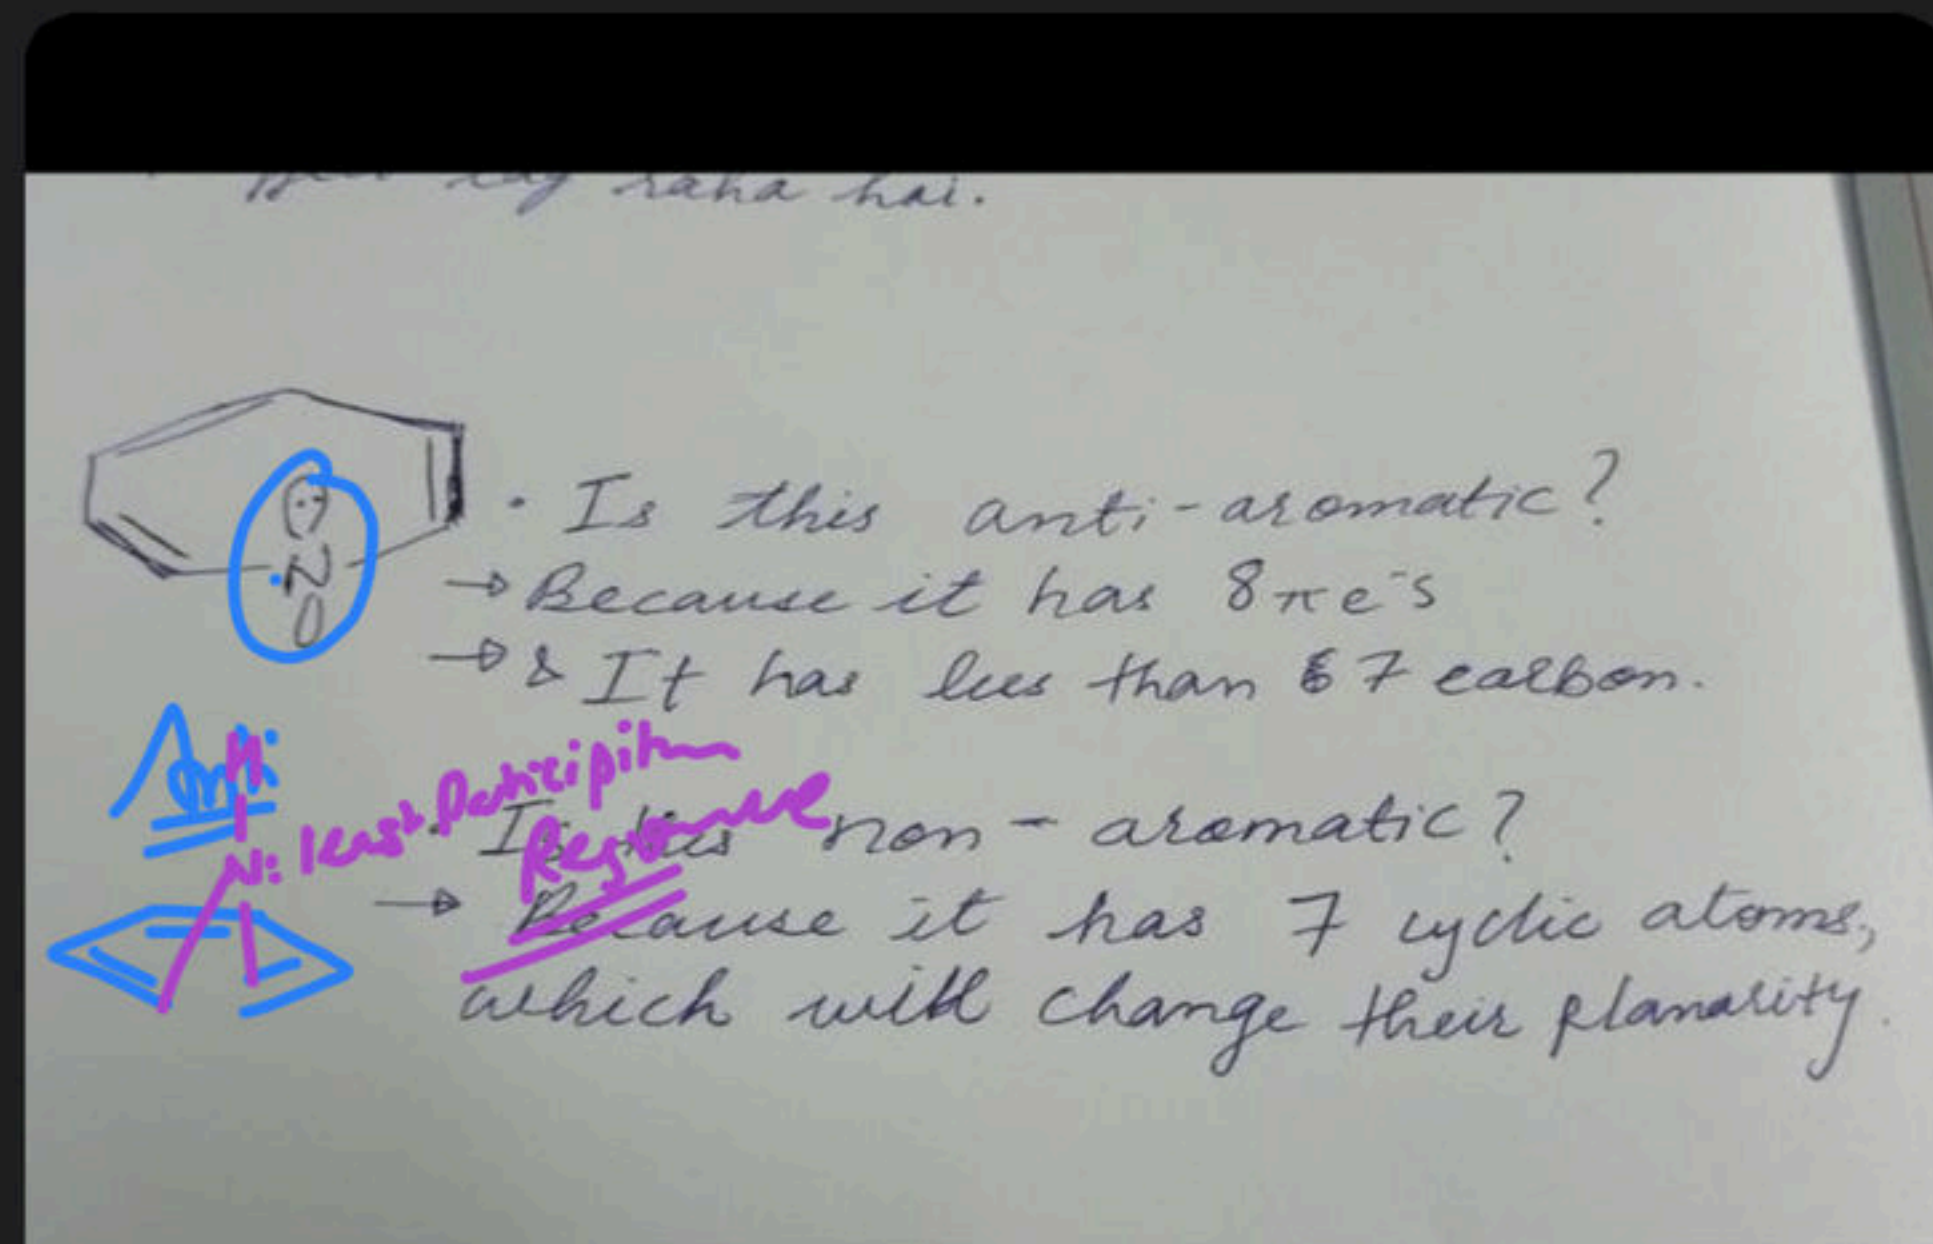 raha hai.
N
• Is this anti-aromatic?
→ Because it has 8πe⁻s
→ & It has less than 67 carbon.
Anti
H
N: least Participitan
Resonance
• Is this non-aromatic?
→ Because it has 7 cyclic atoms,
which will change their planarity.